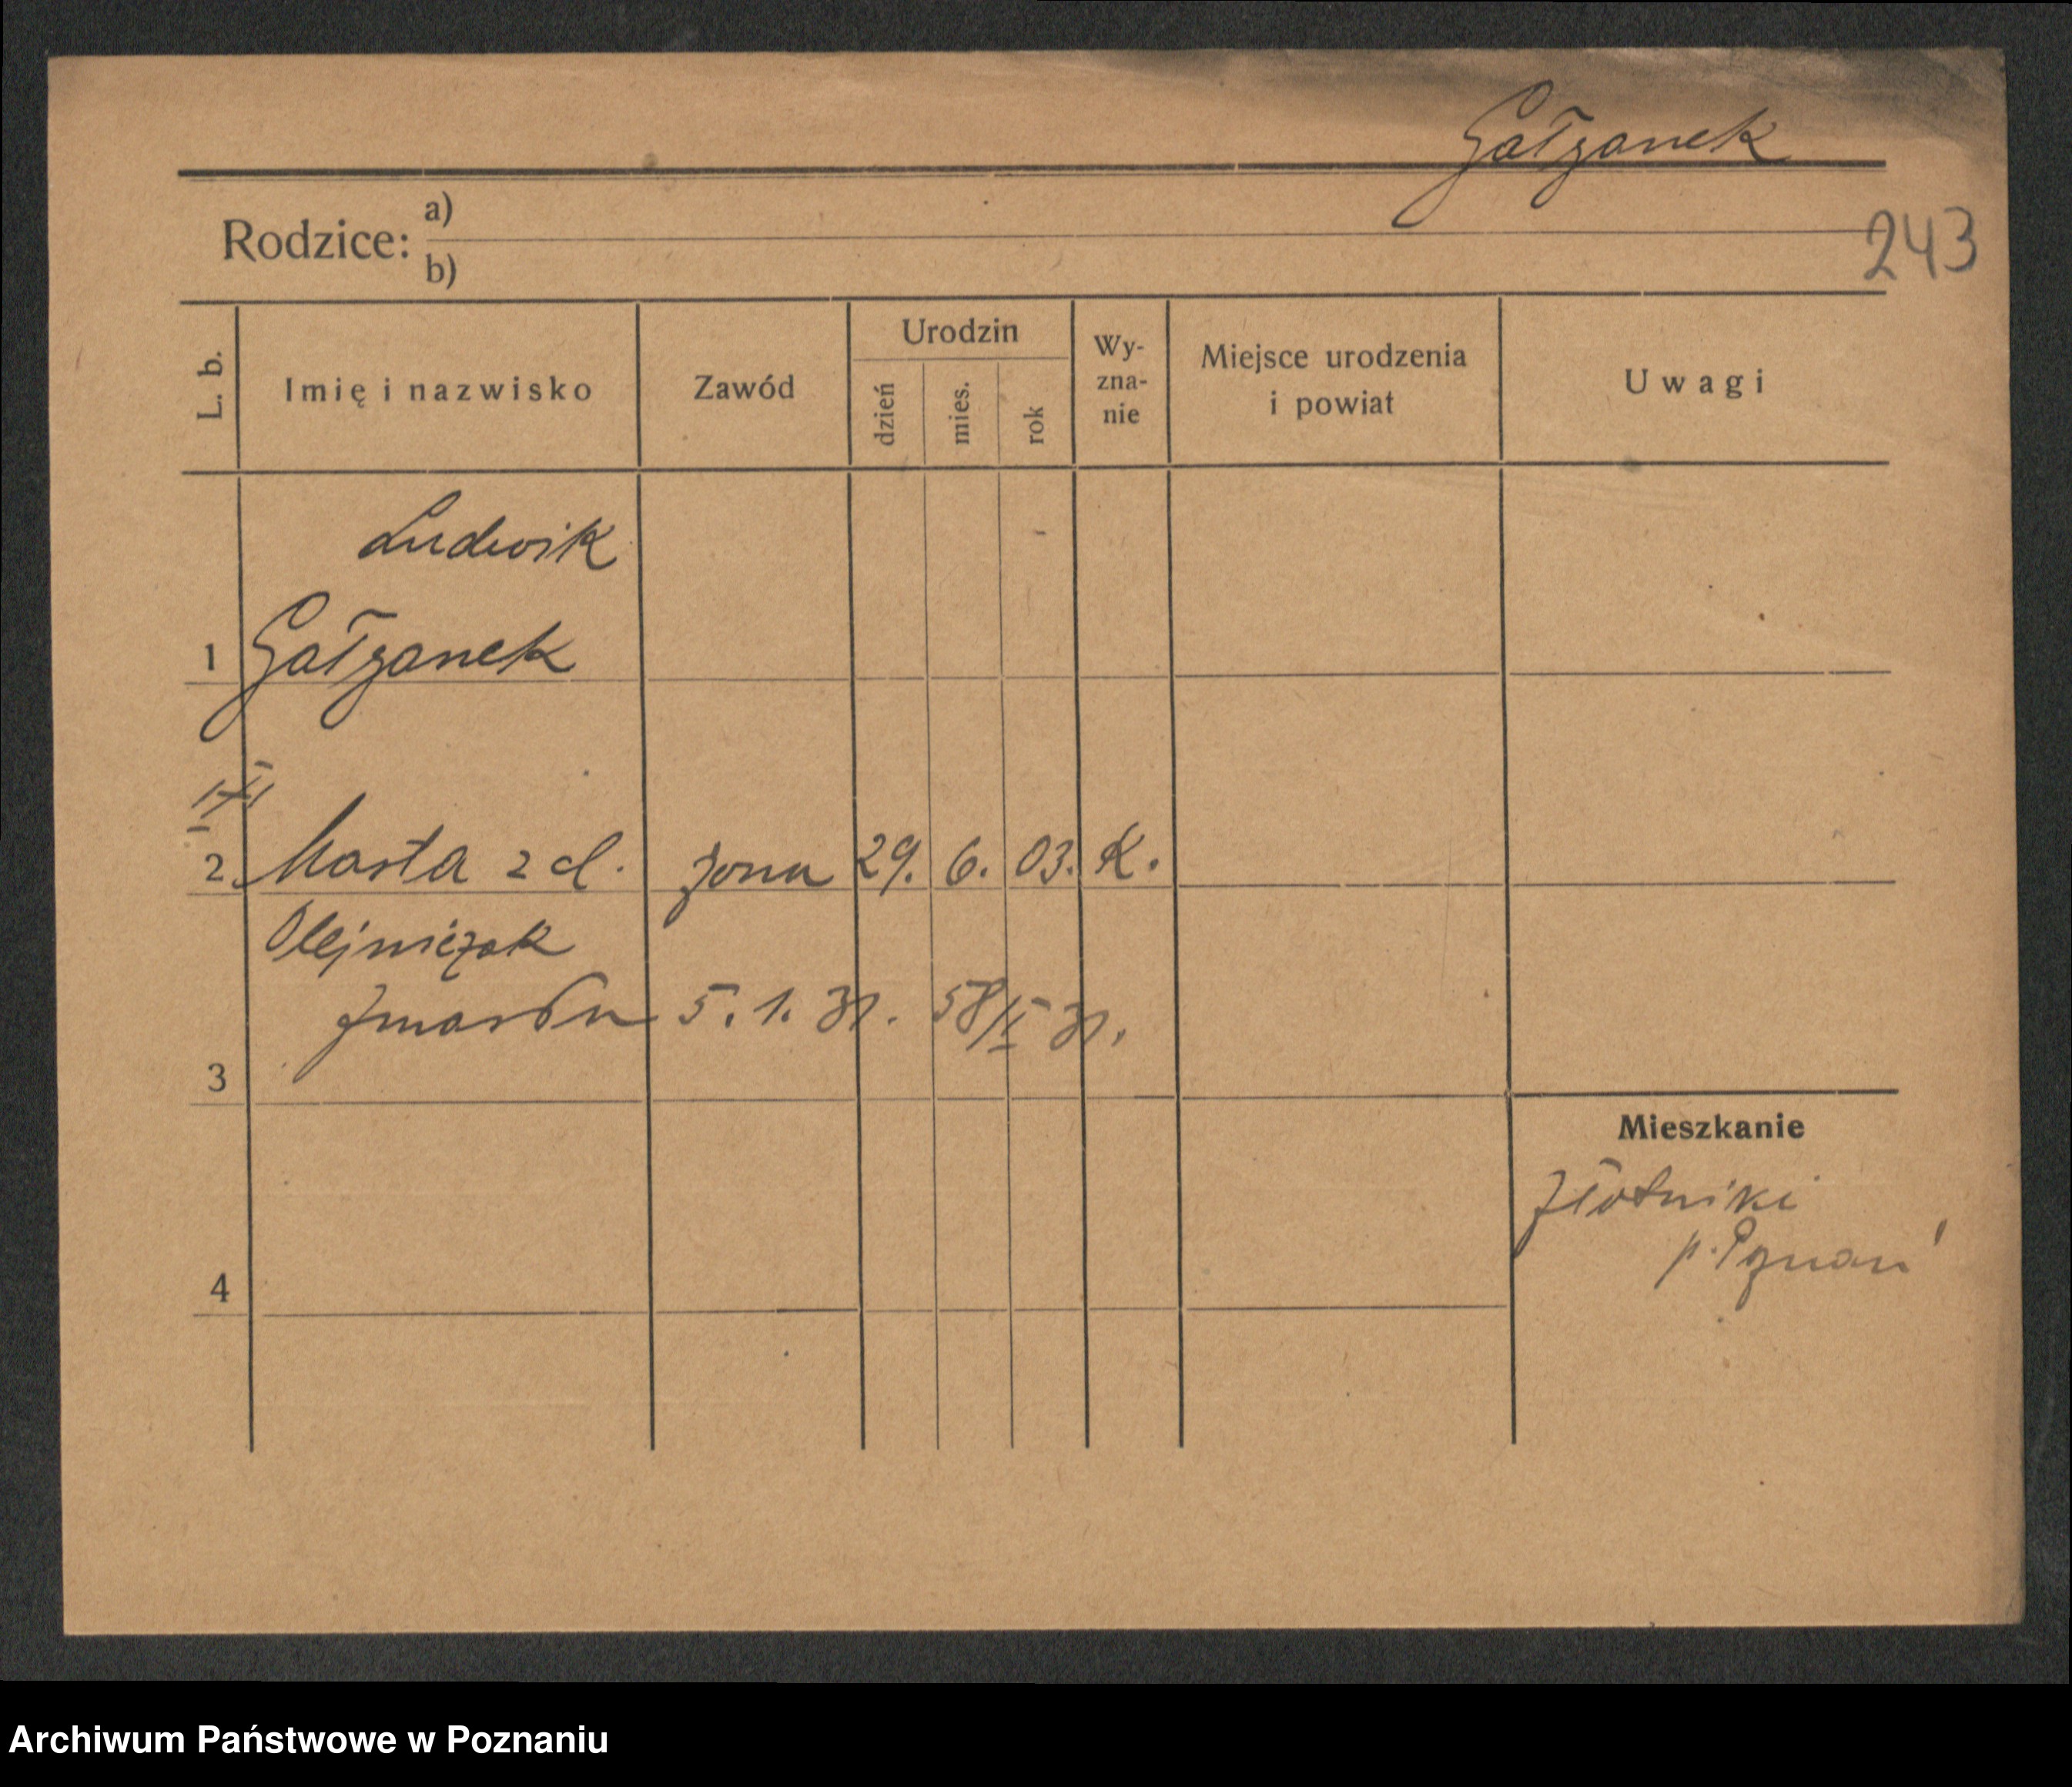 Gałzanek
243
Rodzice: a)
b)
L. b. Imię i nazwisko Zawód Urodzin dzień mies. rok Wy-zna-nie Miejsce urodzenia i powiat Uwagi
Ludwik
1 Gałzanek
2 Marta z d. żona 29. 6. 03. K.
Olejniczak
zmarła 5. 1. 31. 58/II 31.
3
Mieszkanie
Złotniki
p. Poznań
4
Archiwum Państwowe w Poznaniu